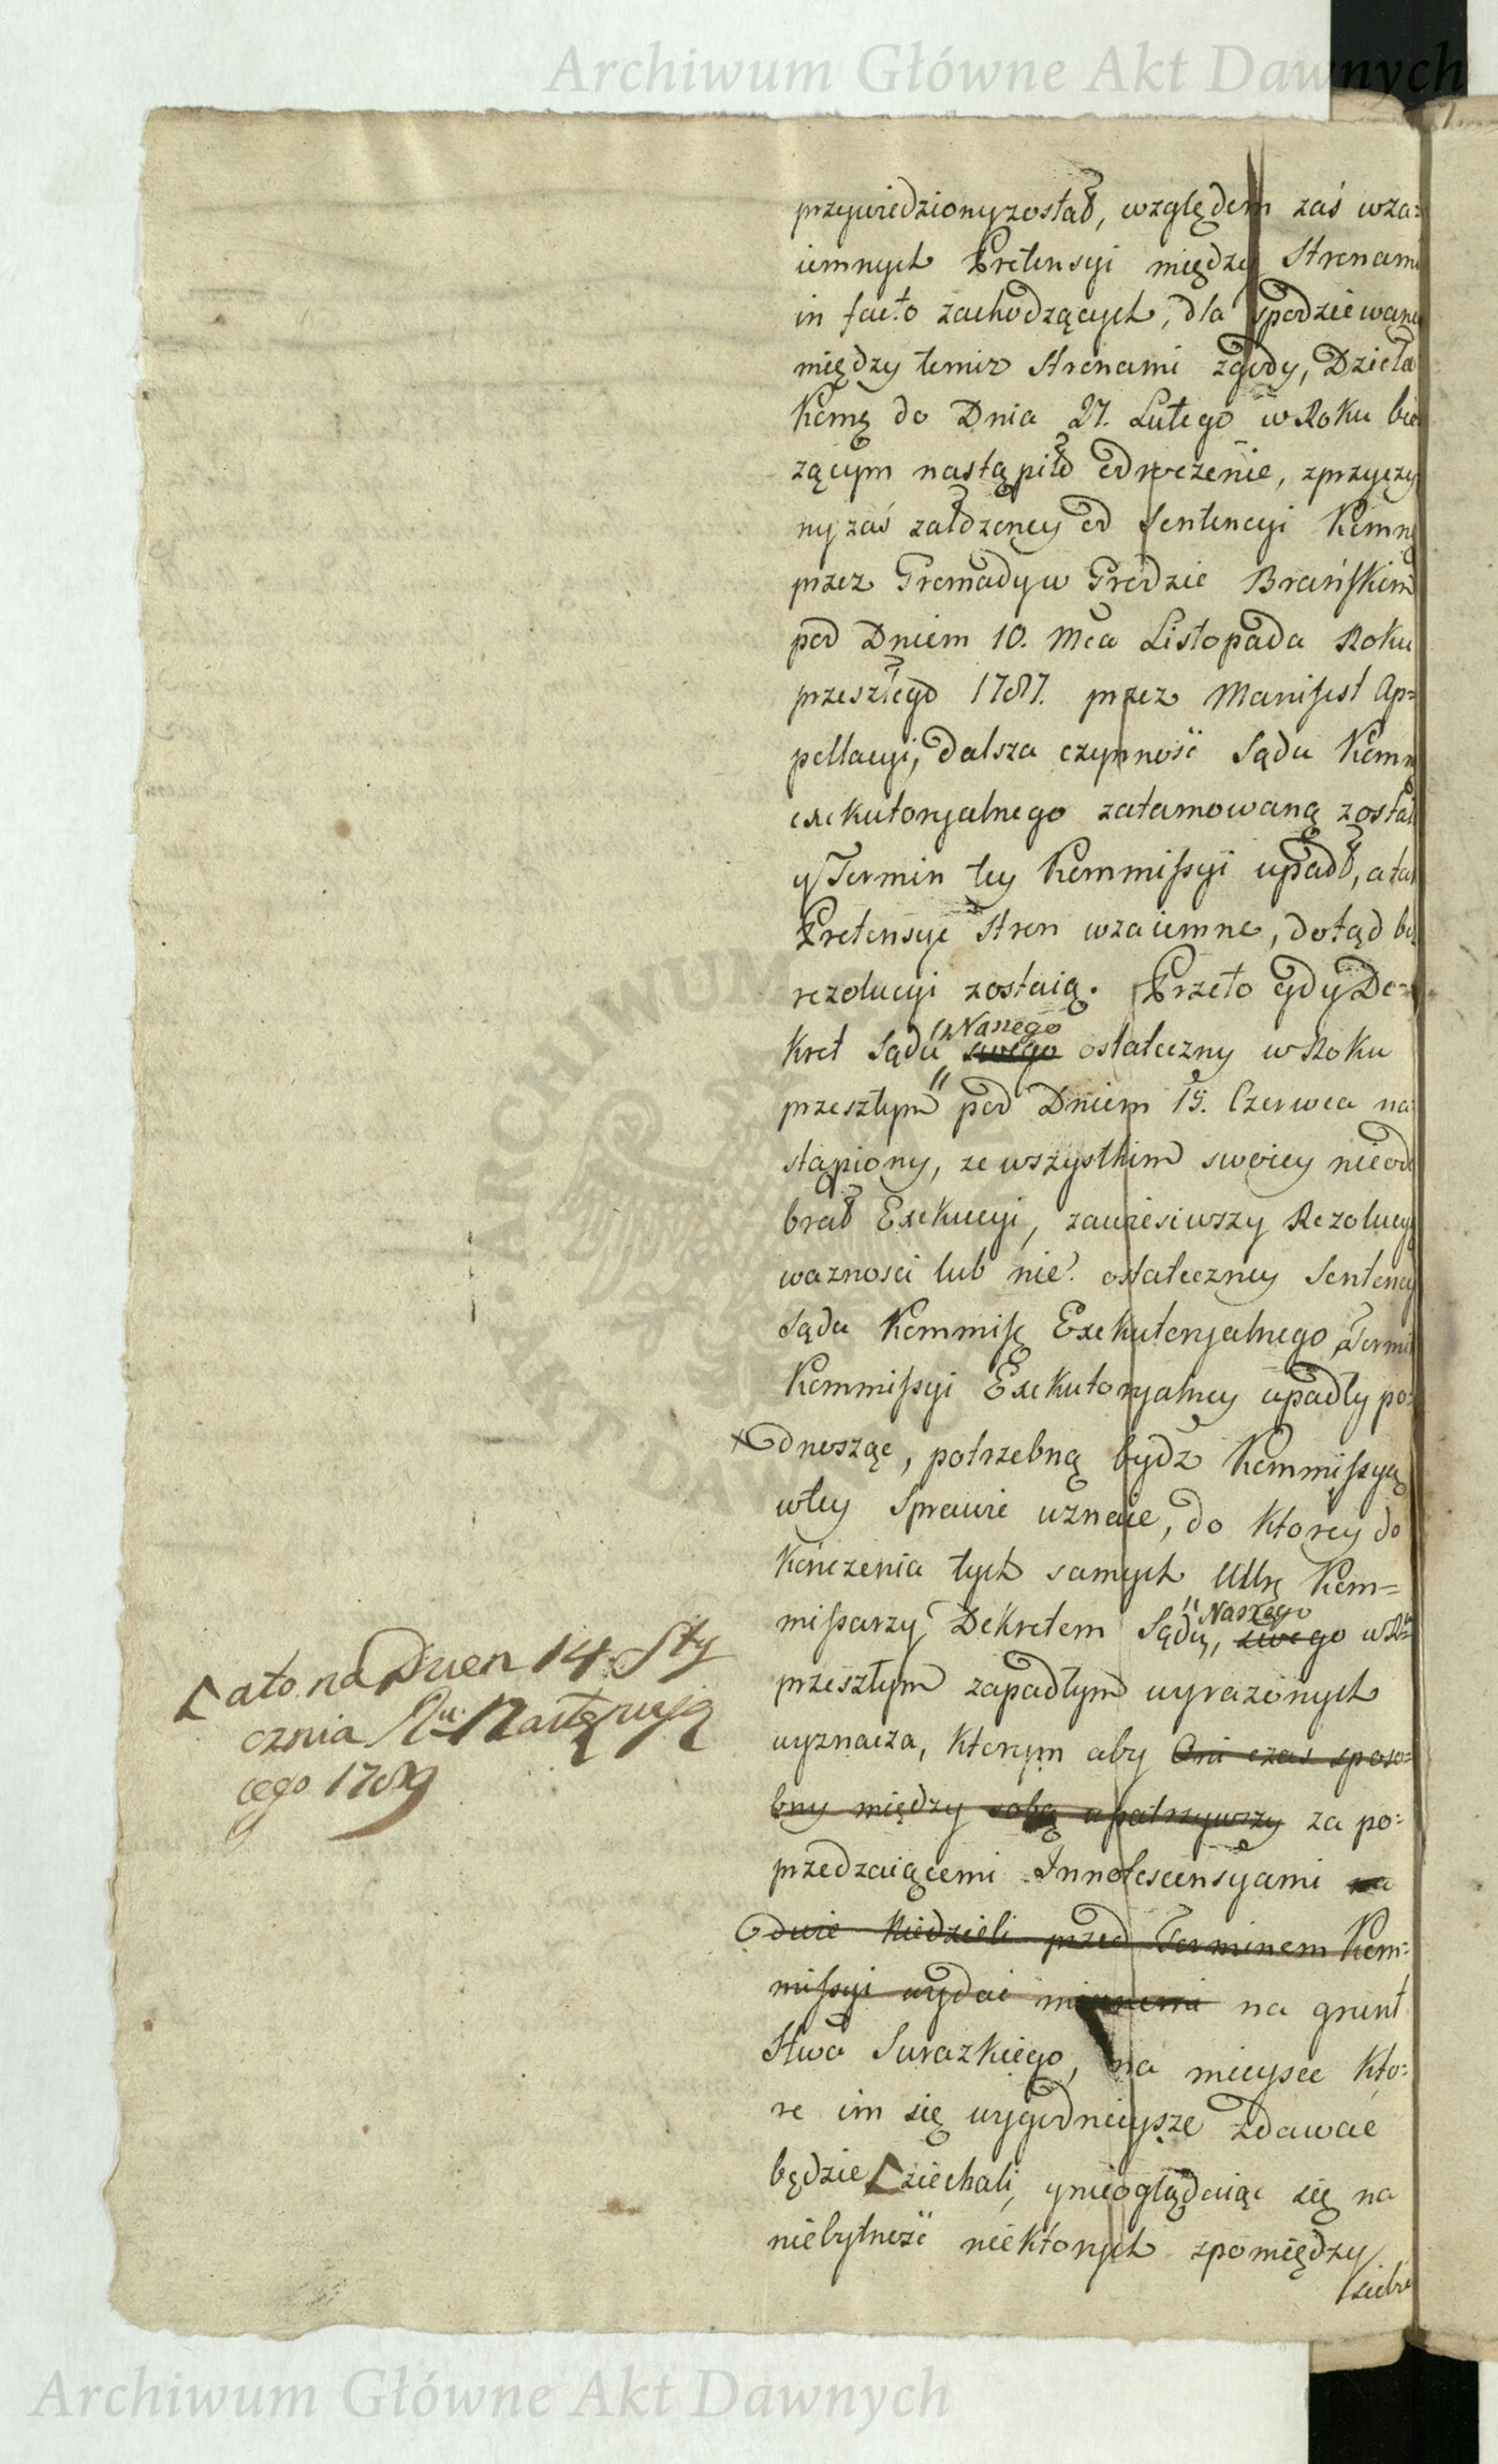 Archiwum Główne Akt Dawnych
przywiedziony został, względem zaś wza=
iemnych Pretensyi między Stronami
in facto zachodzących, dla spodziewaney
między temiż Stronami zgody, Dzieła
Komę do Dnia 27. Lutego w Roku bie
żącym nastąpiło odroczenie, z przyczy
ny zaś założoney od Sentencyi Komnę
przez Gromady w Grodzie Brańskim
pod Dniem 10. Mca Listopada Roku
przeszłego 1787. przez Manifest Ap=
pellacyi, dalsza czynność Sądu Komnę
exekutoryalnego zatamowaną został
y Termin tey Kommissyi upadł, a tak
Pretensye Stron wzaiemne, dotąd bez
rezolucyi zostaią. Przeto gdy De=
kret Sądu swego ostateczny w Roku
Naszego
przeszłym pod Dniem 15. Czerwca na
stąpiony, ze wszystkim swoiey nieode
brał Exekucyi, zawiesiwszy Rezolucyę
ważności lub nie ostateczney Sentency
Sądu Kommisę Exekutoryalnego, Termin
Kommissyi Exekutoryalney upadły po=
dnosząc, potrzebną bydź Kommissyą
w tey Sprawie uznaie, do ktorey do
kończenia tych samych Ullrę Kom=
missarzy Dekretem Sądu, swego w Rku
Naszego
przeszłym zapadłym wyrażonych
wyznacza, ktorym aby Oni czas sposo=
bny między sobą upatrzywszy za po=
przedzaiącemi Innotescensyami na
dwie Niedzieli przed Terminem Kom=
missyi wydać na grunt
Stwa Surazkiego, na mieysce kto=
re im się wygodnieysze zdawać
będzie ziechali, y nieoglądaiąc się na
niebytność niektorych z pomiędzy
siebie
ato na Dzień 14. Sty
cznia Ru Nastęvuią
cego 1789
ARCHIWUM
AKT DAWNYCH
Archiwum Główne Akt Dawnych